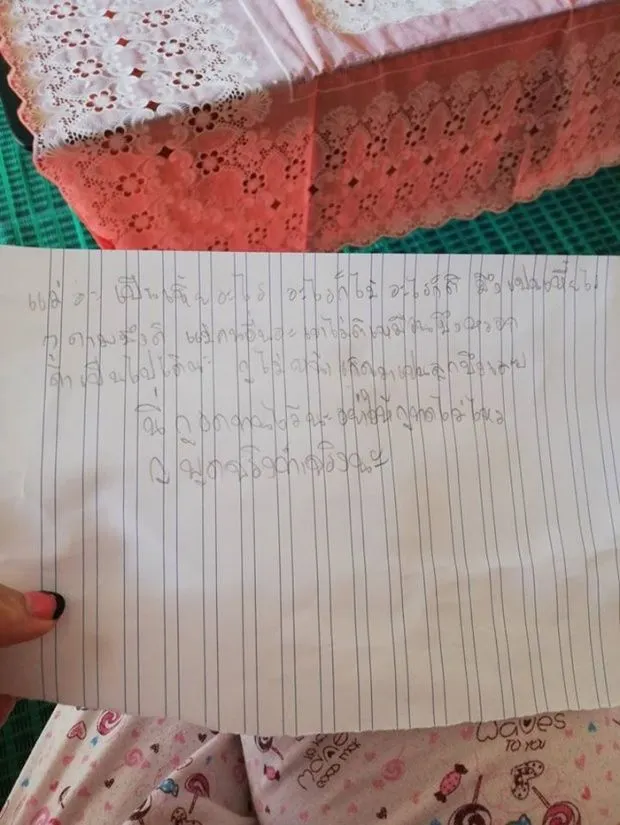 แม่ อะ เป็นเหี้ยอะไร อะไรก็ไร่ อะไรก็ดี มึงเป็นเหี้ยไร
กู ตามมึงดิ แม่คนอื่นอะ เขาไม่ดีเหมือนมึงหรอก
ถ้าเป็นไปได้นะ กูไม่ เกิดมาเป็นลูกมึงเลย
นี่ กูอดทนไว้นะ อย่าให้กูทนไม่ไหว
กู พูดจริงทำจริงนะ
waves
TO YOU
GOOD